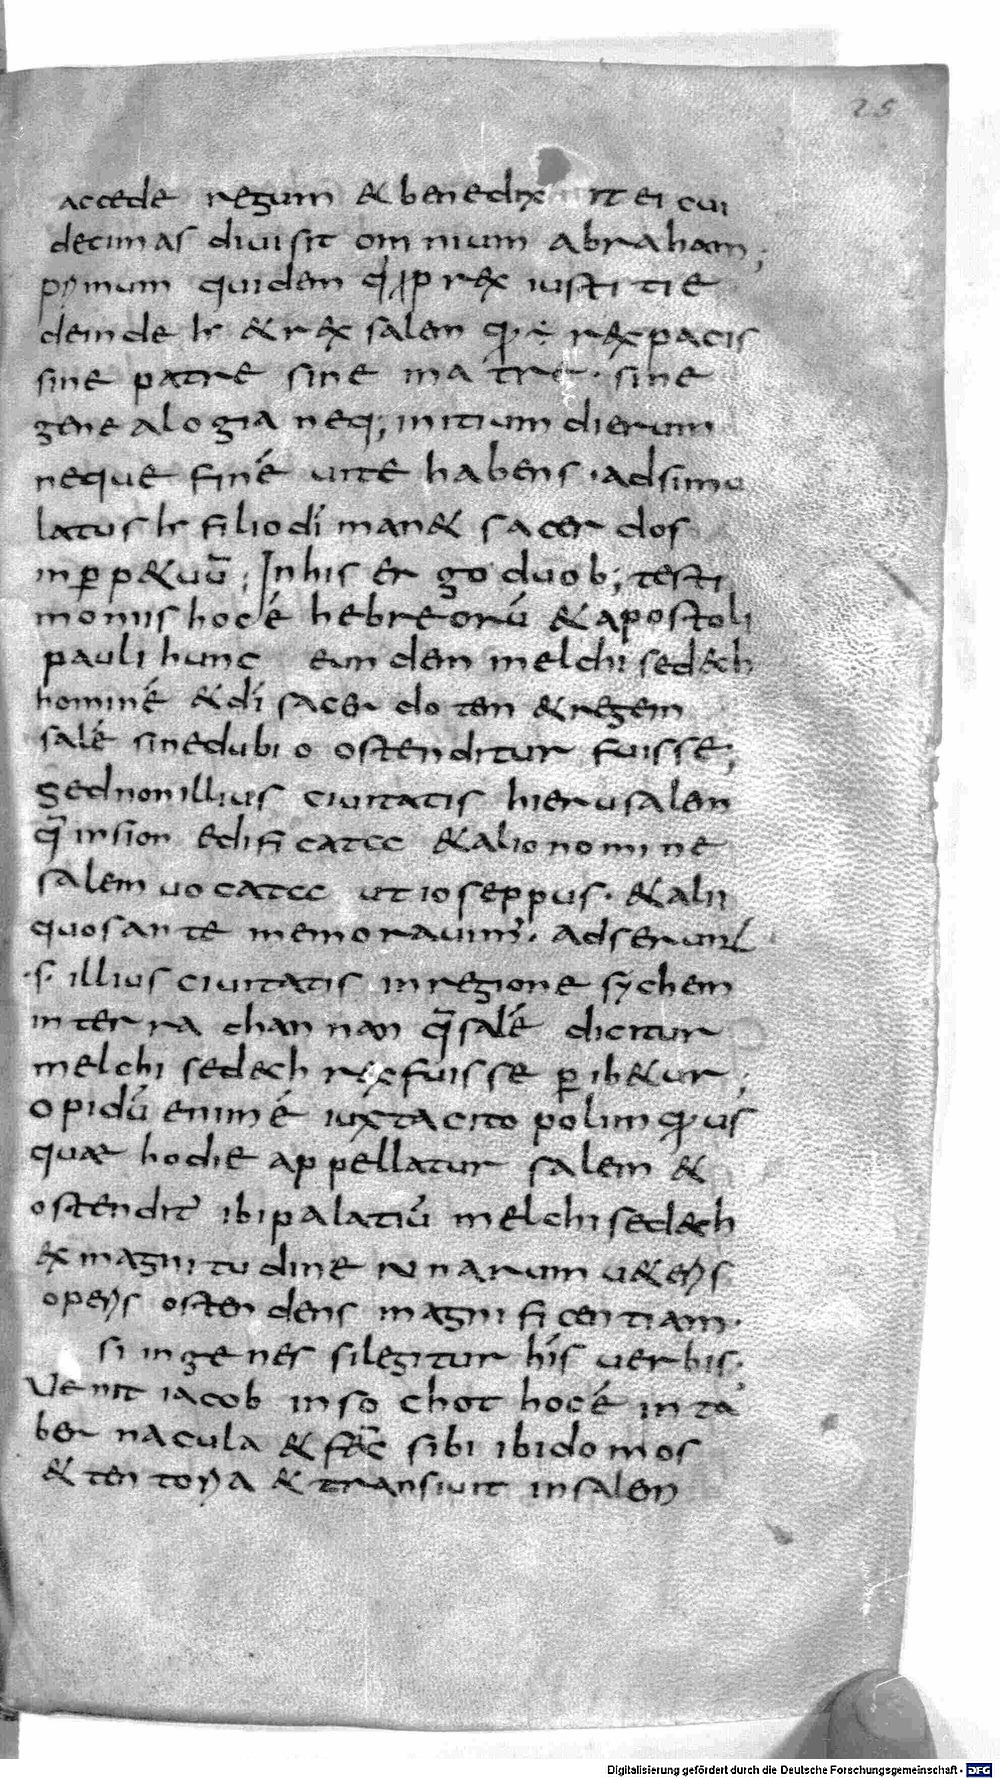 25
accede regum & benedix it ei cui
decimas diuisit omnium abraham;
primum quidem q p rex iustitie
deinde h & rex salem q ÷ rex pacis
sine patre sine matre · sine
genealogia neq; initium dierum
neque finē uite habens · adsimu
latus h filio dī man& sacerdos
in ꝑp&uū; In his ergo duob; testi
moniis hoc ē hebreorū & apostoli
pauli hunc eundem melchisedech
hominē & dī sacerdotem & regem
salē sine dubio ostenditur fuisse;
Sed non illius ciuitatis hierusalem
q̄ in sion edificatcc & alio nomine
salem uocatcc ut ioseppus · & alii
quos ante memorauim᾽ · adserunt
· s · illius ciuitatis in regione sychem
in terra channan q̄ salē dicitur
melchisedech rex fuisse ꝑib&ur;
opidū enim ē iuxta citopolim q us
quae hodie appellatur salem &
ostendit᾽ ibi palatiū melchisedech
ex magnitudine ruinarum u&eris
operis ostendens magnificentiam ·
si in genes si legitur his uerbis ·
Uenit iacob in sochot hoc ē in ta
bernacula & fec̄ sibi ibi domos
& tentoria & transiuit in salem
Digitalisierung gefördert durch die Deutsche Forschungsgemeinschaft - DFG